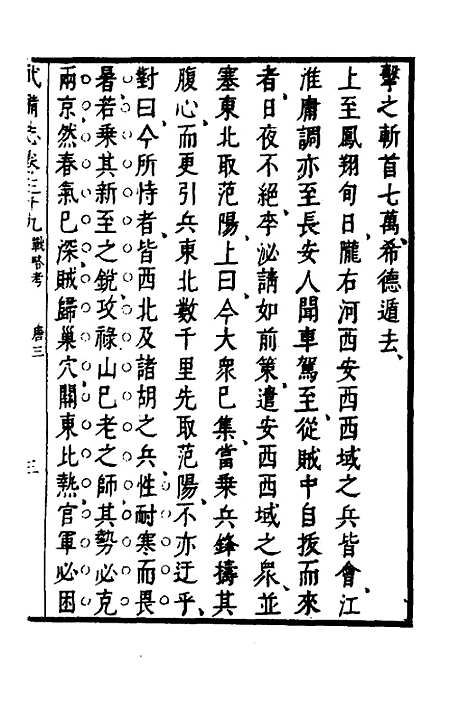 擊之斬首七萬、希德遁去、
上至鳳翔旬日隴右河西安西西域之兵皆會、江
淮庸調亦至、長安人聞車駕至、從賊中自拔而來
者、日夜不絕、李泌請如前策、遣安西西域之衆、並
塞東北取范陽、上曰、今大衆已集、當乘兵鋒擣其
腹心、而更引兵東北數千里、先取范陽、不亦迂乎、
對曰、今所恃者皆西北及諸胡之兵性耐寒而畏
暑若乘其新至之銳攻祿山已老之師其勢必克
兩京然春氣已深賊歸巢穴關東比熱官軍必困
武備志卷三十九 戰略考 唐三 三